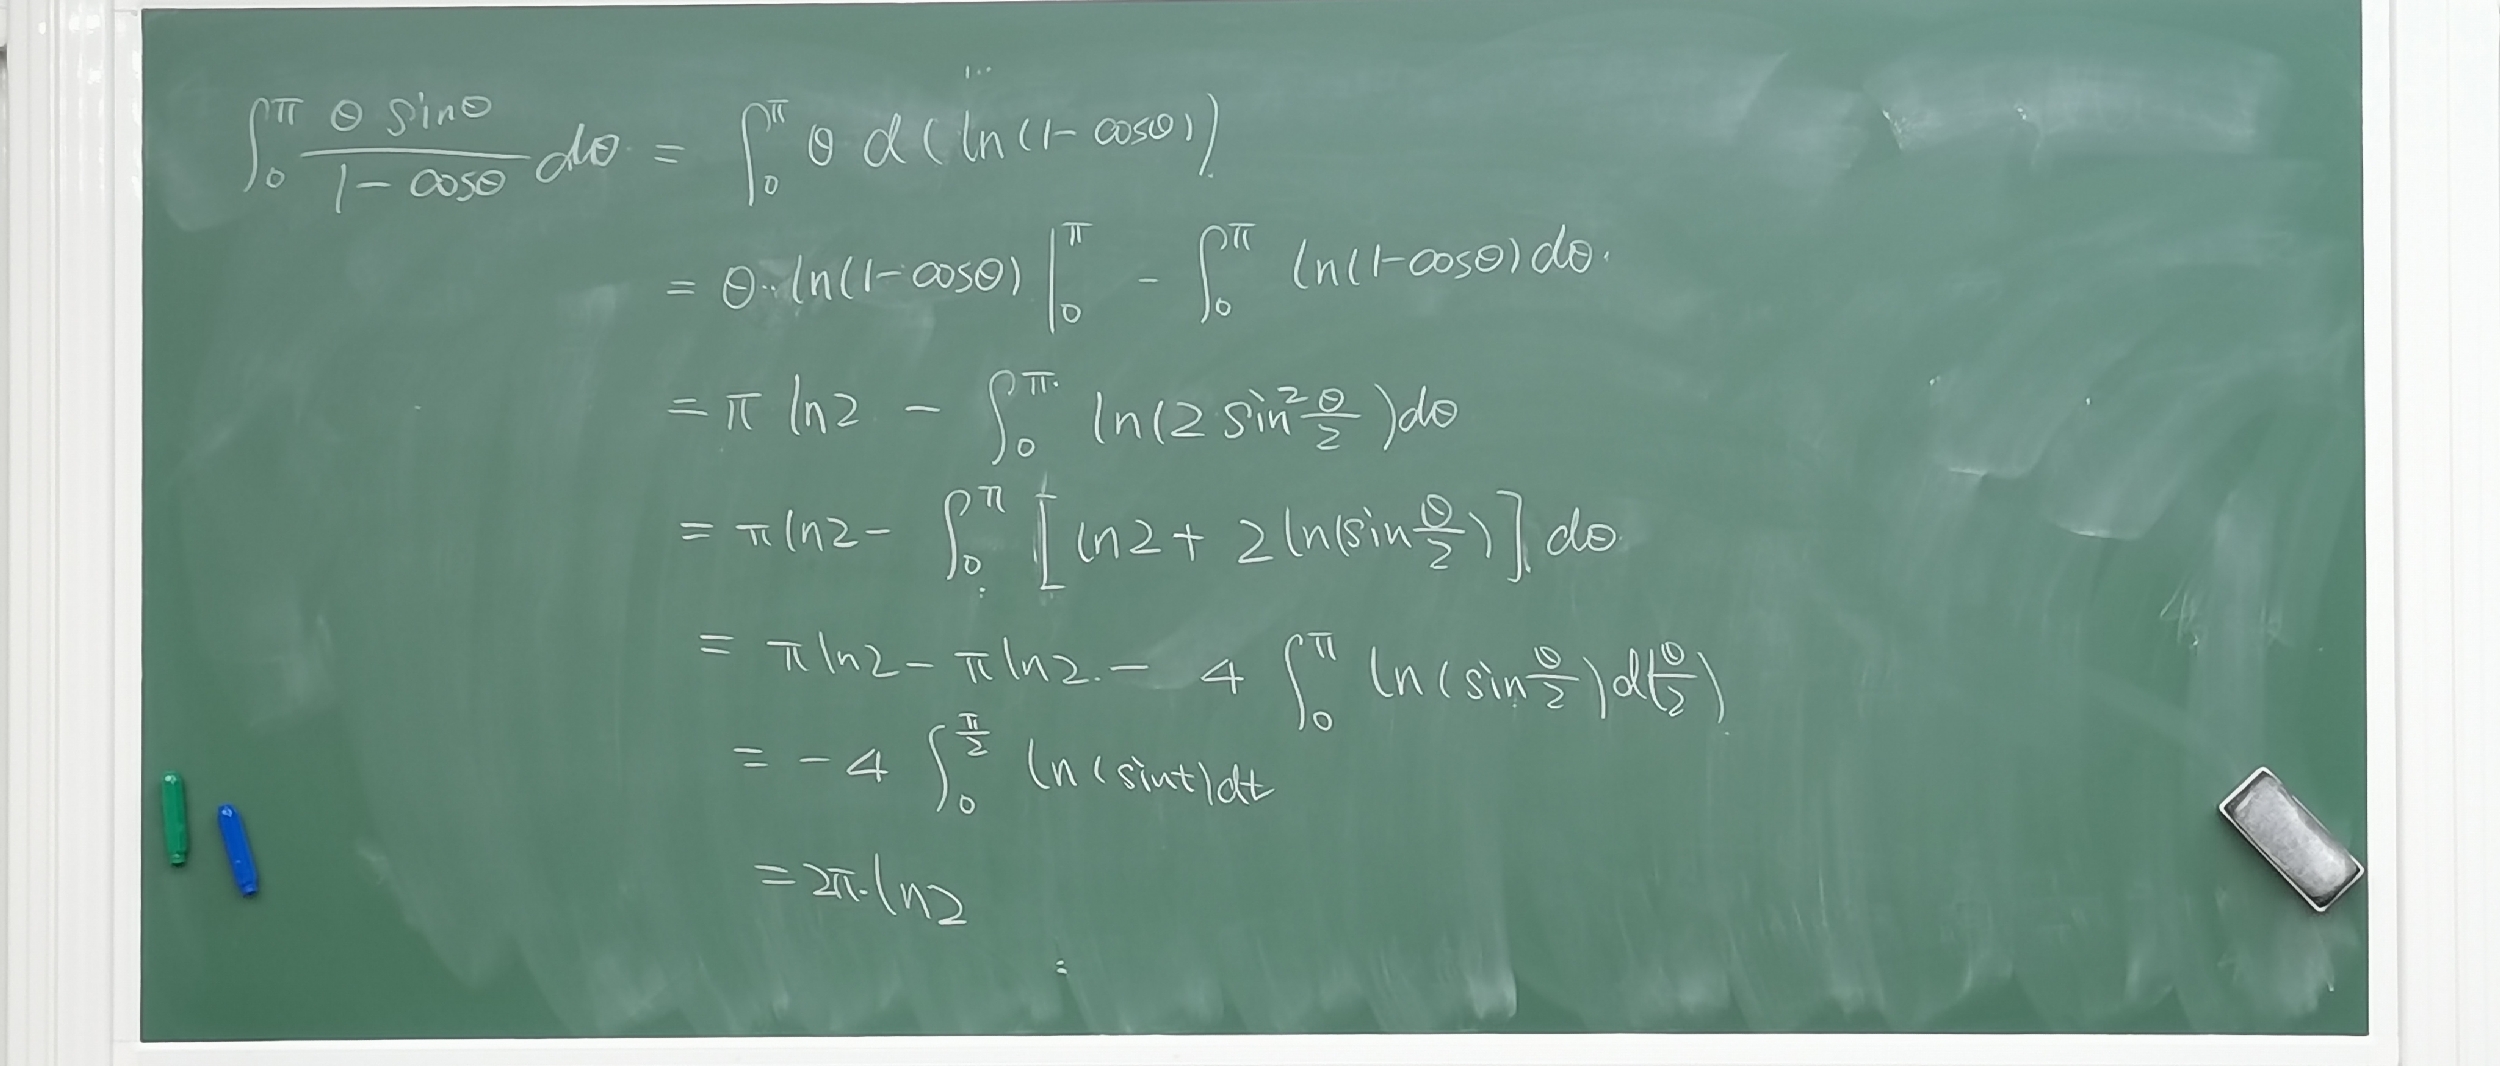 ∫₀^π (θ sinθ)/(1 - cosθ) dθ = ∫₀^π θ d(ln(1 - cosθ))
= θ·ln(1-cosθ) |₀^π - ∫₀^π ln(1-cosθ) dθ.
= π ln2 - ∫₀^π ln(2 sin² θ/2) dθ
= π ln2 - ∫₀^π [ln2 + 2 ln(sin θ/2)] dθ
= π ln2 - π ln2 - 4 ∫₀^π ln(sin θ/2) d(θ/2)
= -4 ∫₀^(π/2) ln(sint) dt
= 2π·ln2